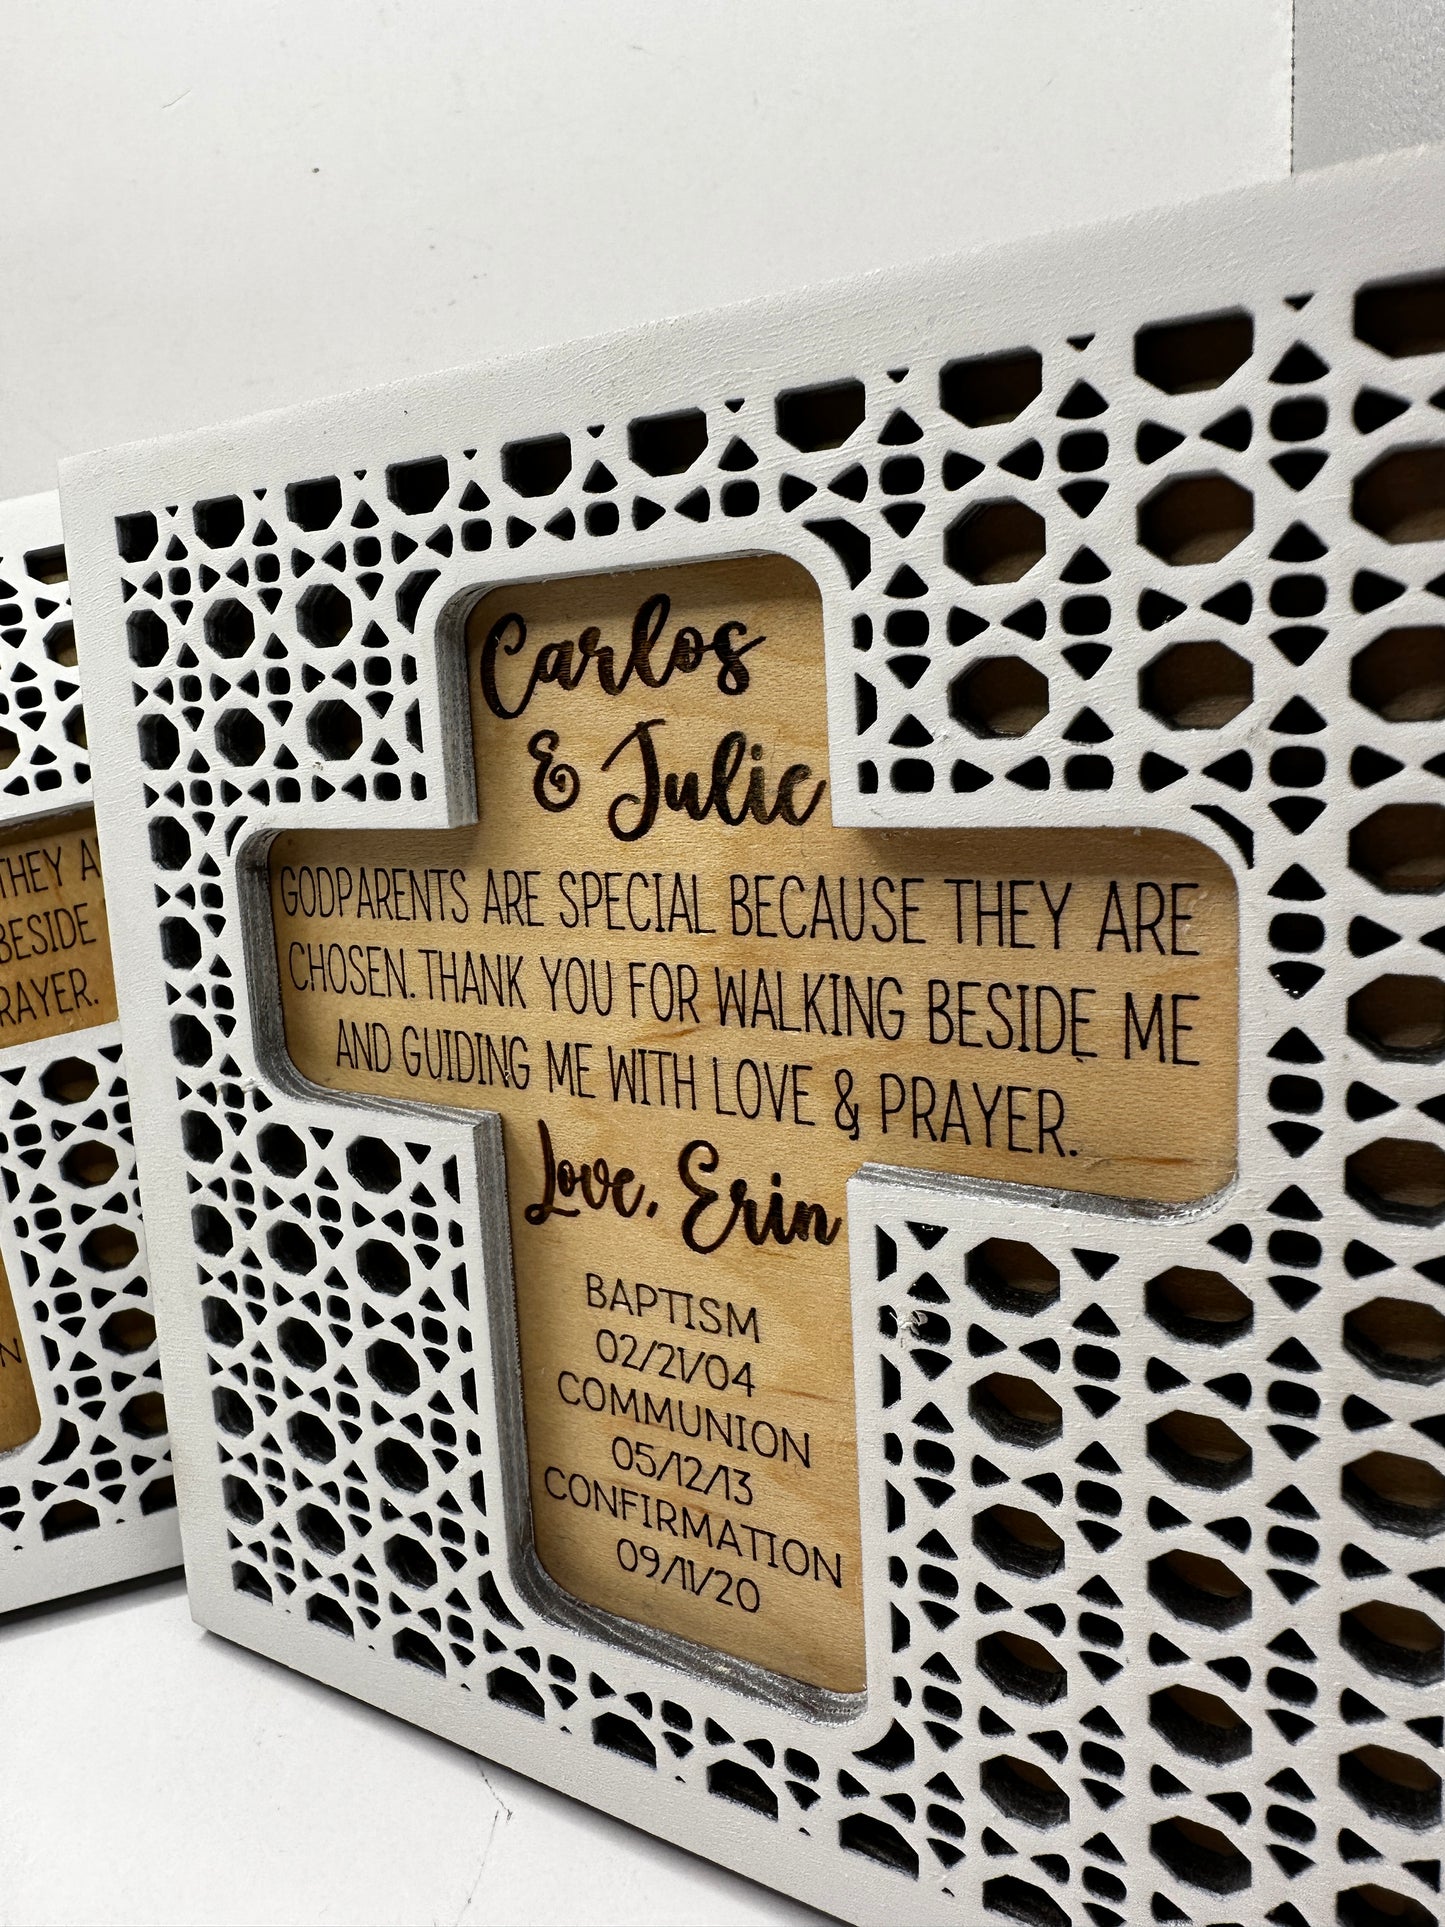 Carlos
& Julie
GODPARENTS ARE SPECIAL BECAUSE THEY ARE
CHOSEN. THANK YOU FOR WALKING BESIDE ME
AND GUIDING ME WITH LOVE & PRAYER.
Love, Erin
BAPTISM
02/21/04
COMMUNION
05/12/13
CONFIRMATION
09/11/20
THEY
BESIDE